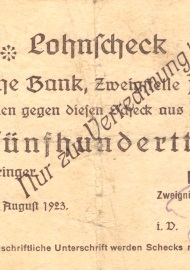 Lohnscheck
he Bank, Zweigstelle
en gegen diesen Scheck aus
ünfhundertt
ringer.
Nur zur Verrechnung!
August 1923.
Zweigni
i. D.
schriftliche Unterschrift werden Schecks n